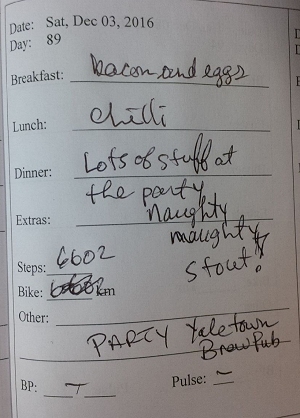 Date: Sat, Dec 03, 2016
Day: 89
Breakfast: bacon and eggs
Lunch: chilli
Dinner: Lots of stuff at
the party
Extras: Naughty
naughty
stout!
Steps: 6602
Bike: km
Other:
PARTY Yaletown
BrewPub
BP: -
Pulse: -